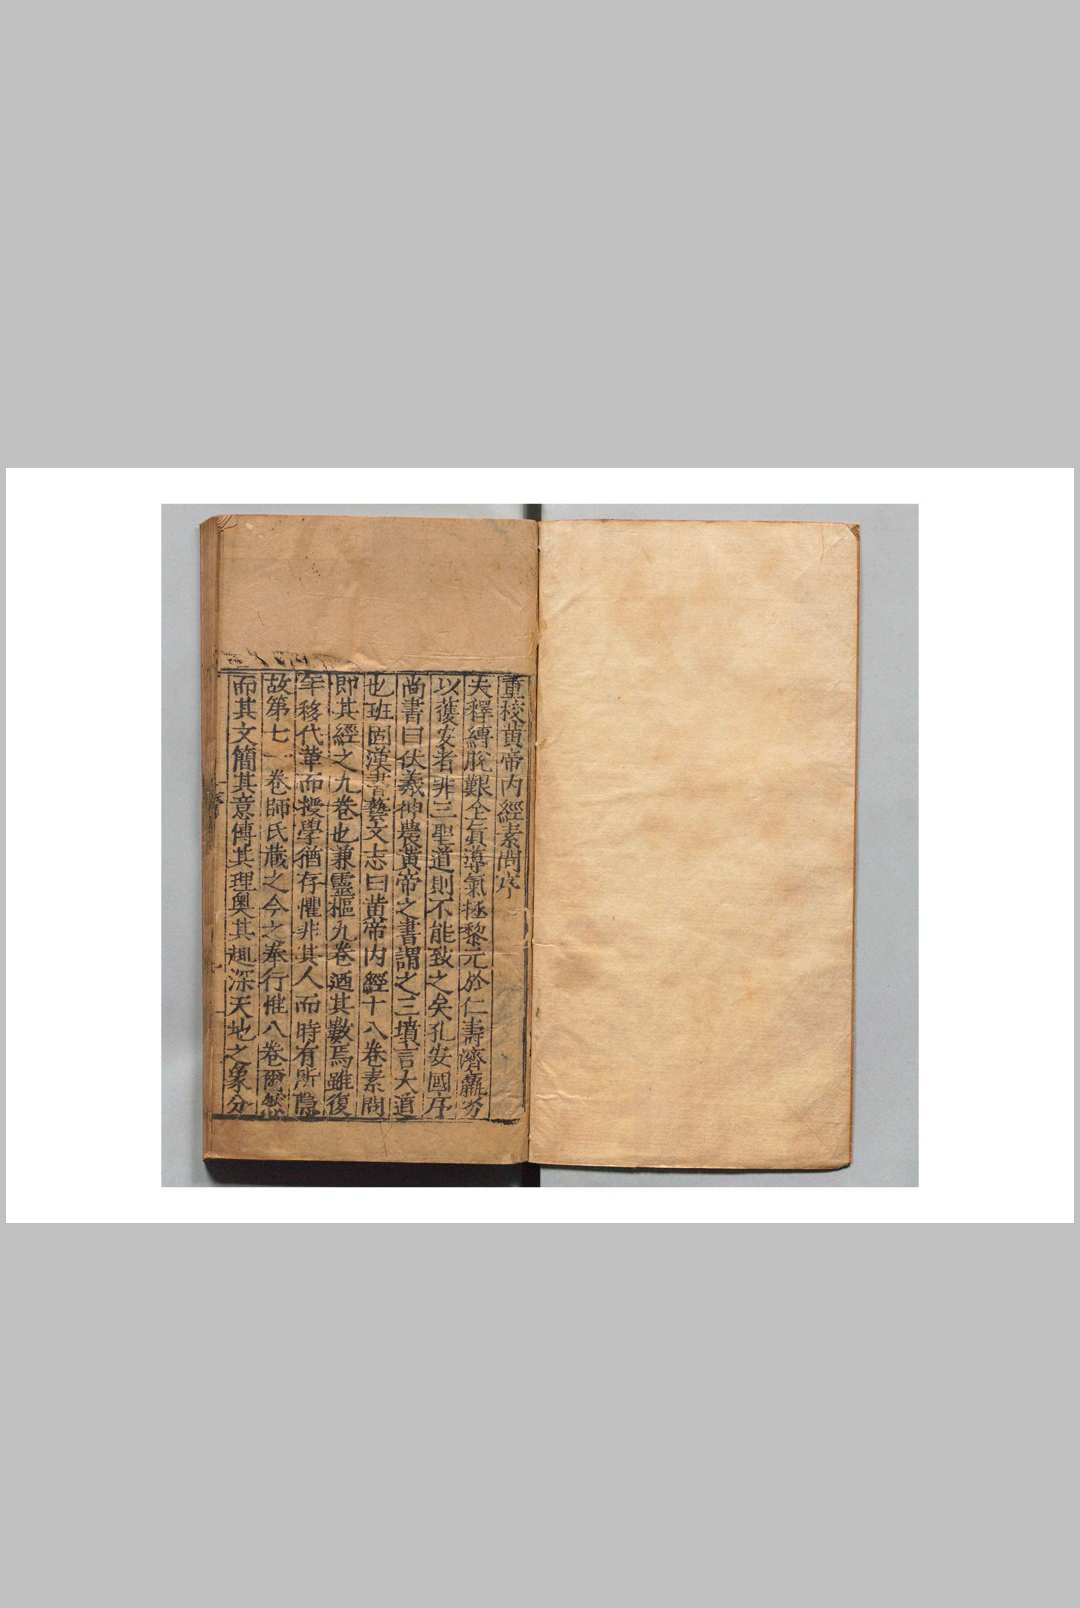 重校黄帝内經素問序
夫釋縛脫艱全眞導氣拯黎元於仁壽濟羸劣
以獲安者非三聖道則不能致之矣孔安國序
尚書曰伏羲神農黃帝之書謂之三墳言大道
也班固漢書藝文志曰黄帝内經十八卷素問
即其經之九卷也兼靈樞九卷迺其數焉雖復
年移代革而授學猶存懼非其人而時有所隱
故第七一卷師氏藏之今之奉行惟八卷爾然
而其文簡其意博其理奧其趣深天地之象分